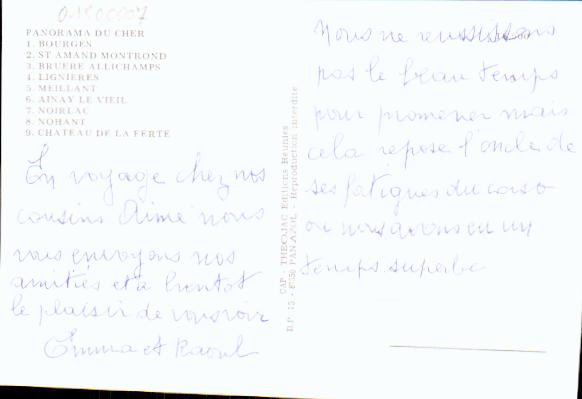 01800007
PANORAMA DU CHER
1. BOURGES
2. ST AMAND MONTROND
3. BRUERE ALLICHAMPS
4. LIGNIERES
5. MEILLANT
6. AINAY LE VIEIL
7. NOIRLAC
8. NOHANT
9. CHATEAU DE LA FERTE
En voyage chez nos
cousins Aimé nous
vous envoyons nos
amitiés et à bientot
le plaisir de vous voir
Emma et Raoul
CAP - THEOJAC Editions Réunies
D.P. 15 - 87350 PANAZOL - Reproduction interdite
Nous ne réussissons
pas le beau temps
pour promener mais
cela repose l'oncle de
ses fatigues du corso
ou nous avons eu un
temps superbe